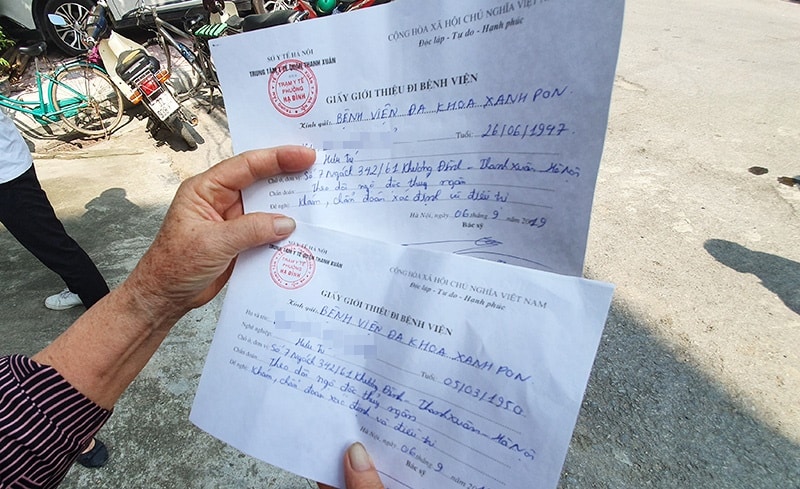 SỞ Y TẾ HÀ NỘI
TRUNG TÂM Y TẾ QUẬN THANH XUÂN
CỘNG HÒA XÃ HỘI CHỦ NGHĨA VIỆT NAM
Độc lập - Tự do - Hạnh phúc
TRẠM Y TẾ
PHƯỜNG
HẠ ĐÌNH
GIẤY GIỚI THIỆU ĐI BỆNH VIỆN
Kính gửi: BỆNH VIỆN ĐA KHOA XANH PON
Tuổi: 26/06/1947
Hưu Trí
Chỗ ở, đơn vị: Số 7 Ngách 342/61 Khương Đình - Thanh Xuân - Hà Nội
Chẩn đoán: Theo dõi ngộ độc thuỷ ngân
Đề nghị: Khám, chẩn đoán xác định và điều trị
Hà Nội, ngày 06 tháng 9 năm 2019
Bác sỹ
SỞ Y TẾ HÀ NỘI
TRUNG TÂM Y TẾ QUẬN THANH XUÂN
CỘNG HÒA XÃ HỘI CHỦ NGHĨA VIỆT NAM
Độc lập - Tự do - Hạnh phúc
TRẠM Y TẾ
PHƯỜNG
HẠ ĐÌNH
GIẤY GIỚI THIỆU ĐI BỆNH VIỆN
Kính gửi: BỆNH VIỆN ĐA KHOA XANH PON
Họ và tên:
Tuổi: 05/03/1950
Nghề nghiệp: Hưu Trí
Chỗ ở, đơn vị: Số 7 Ngách 342/61 Khương Đình - Thanh Xuân - Hà Nội
Chẩn đoán: Theo dõi ngộ độc thuỷ ngân
Đề nghị: Khám, chẩn đoán xác định và điều trị
Hà Nội, ngày 06 tháng 9 năm
Bác sỹ